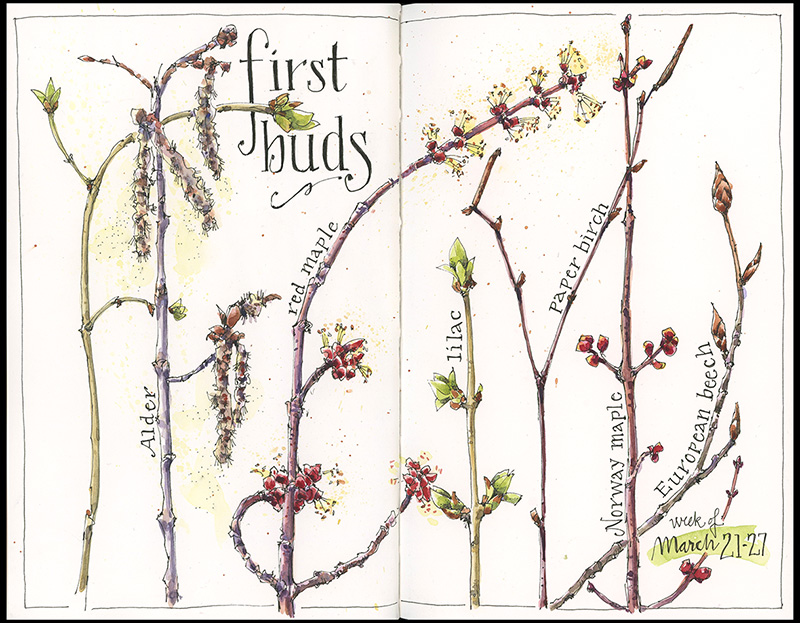 first
buds
Alder
red maple
lilac
paper birch
Norway maple
European beech
week of
March 21-27